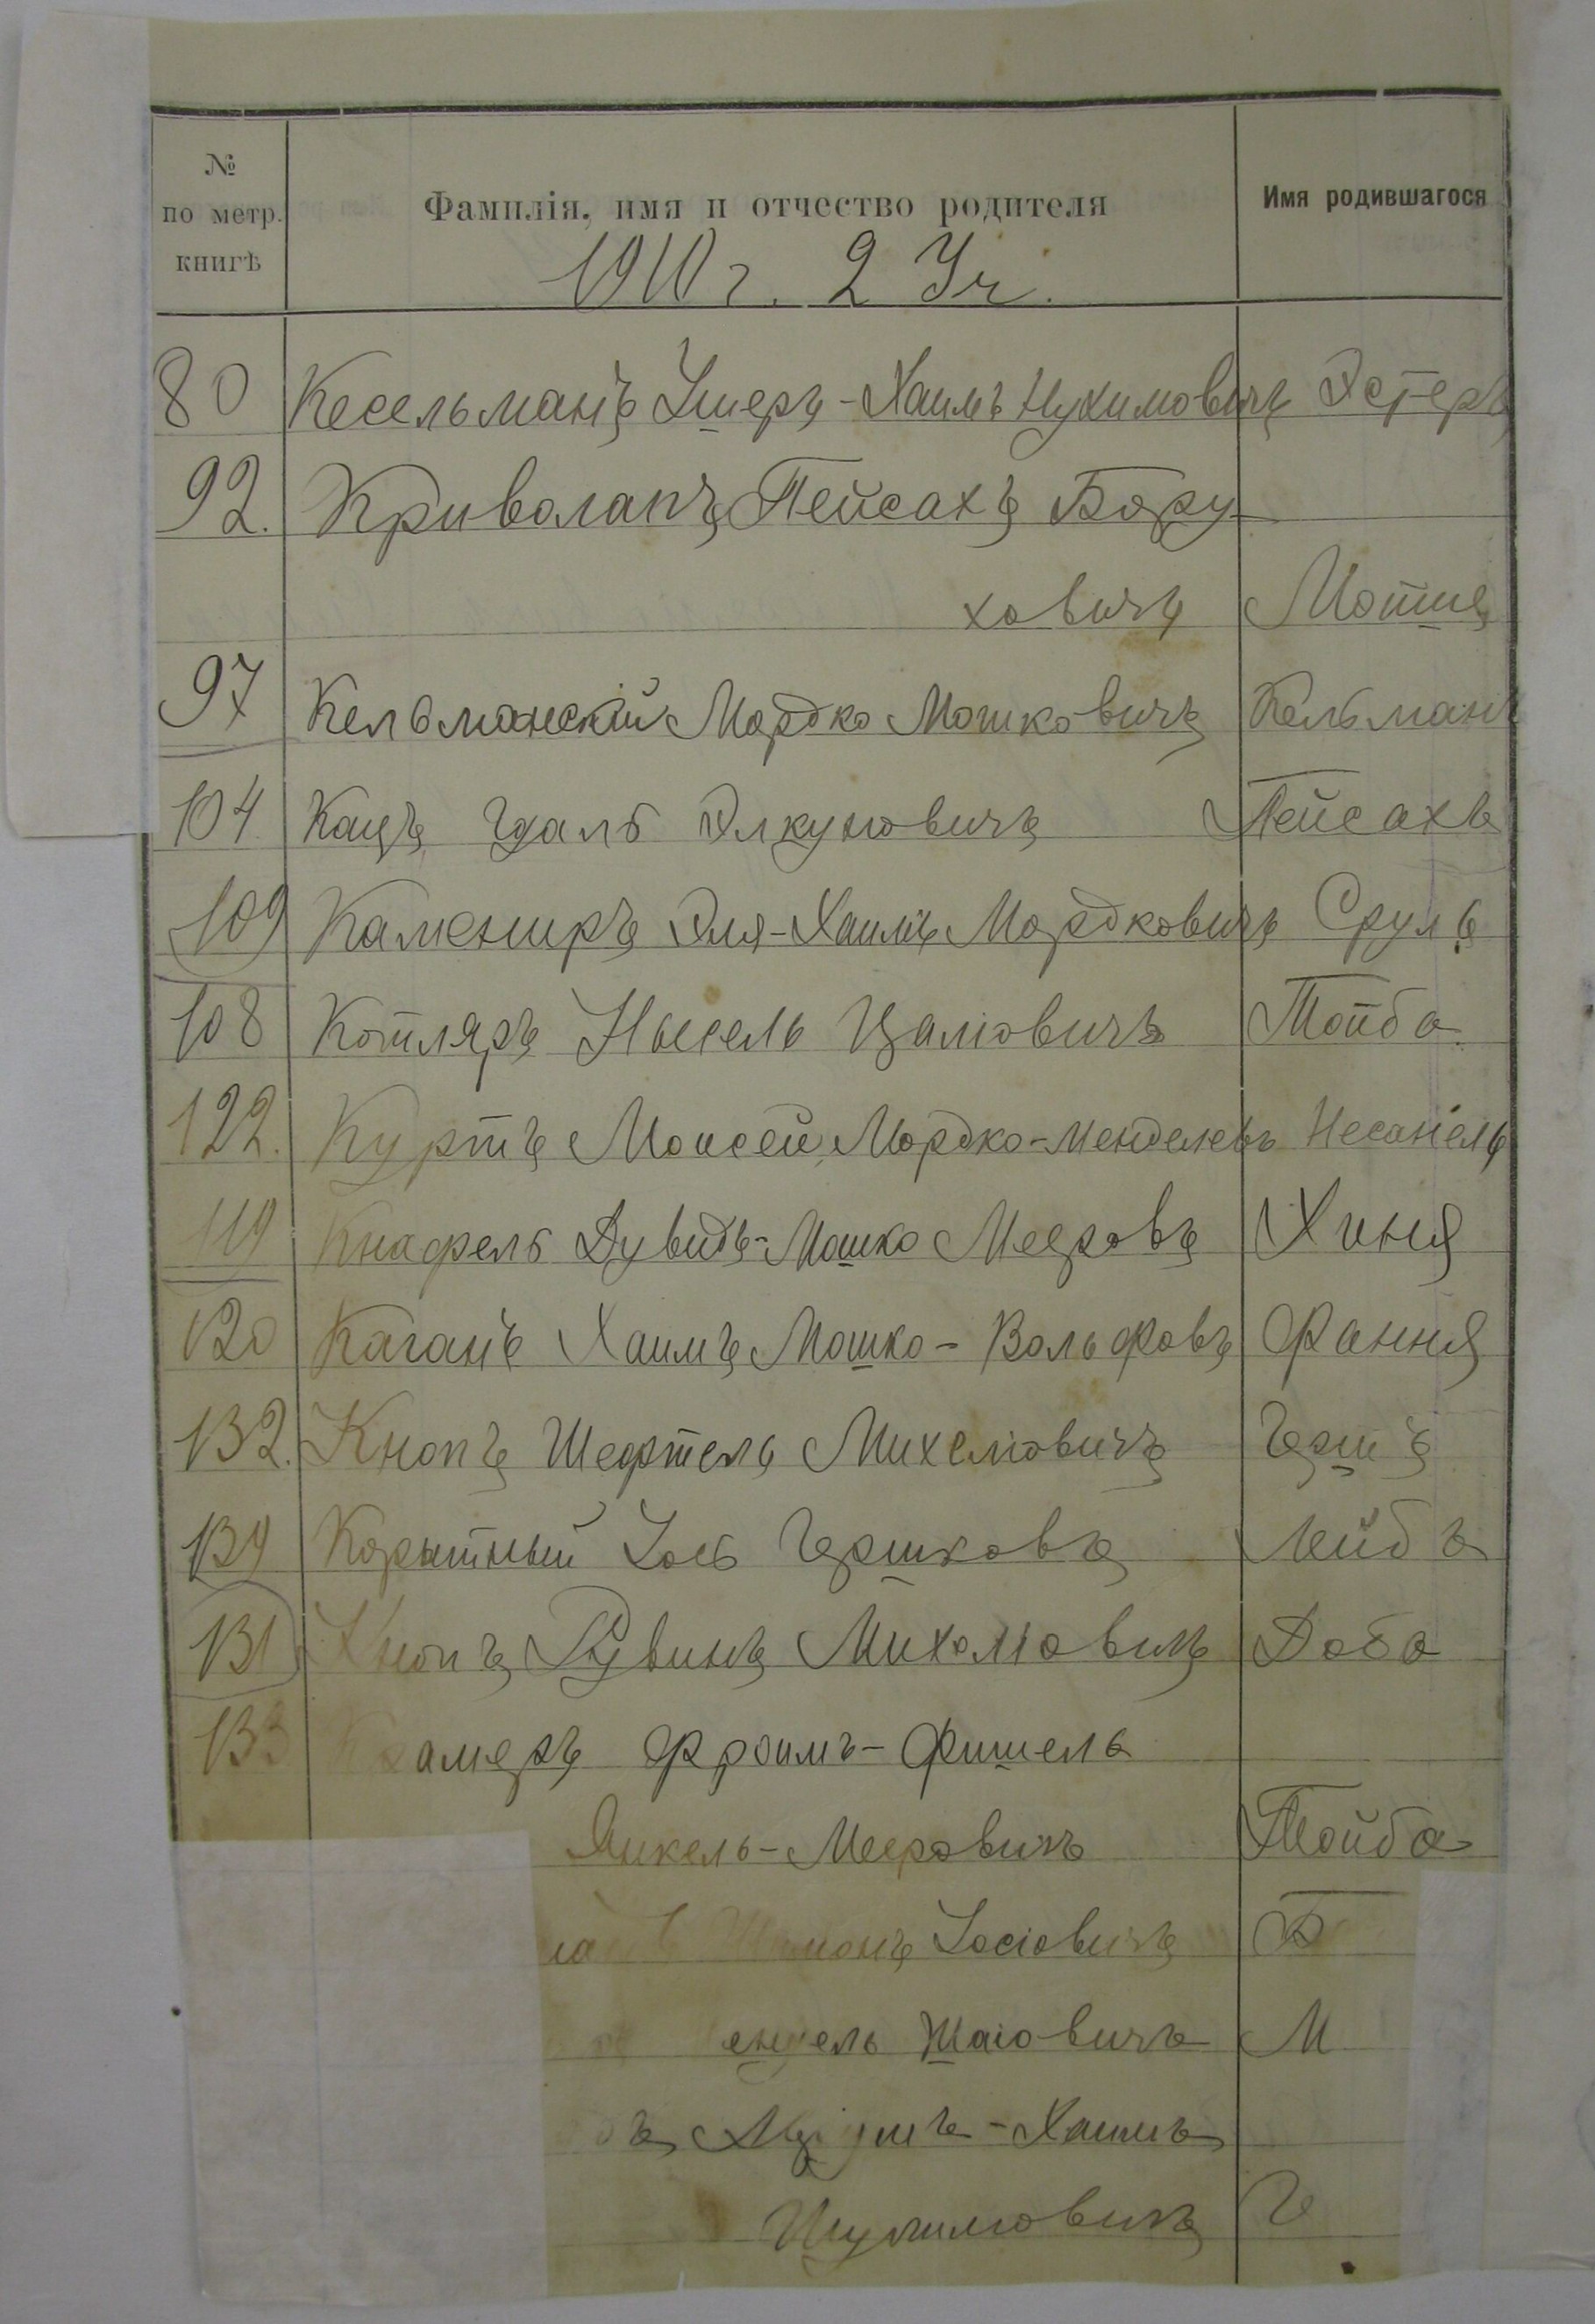 № по метр. книгѣ Фамилія, имя и отчество родителя Имя родившагося
1910 г. 2 Уч.
80 Кесельманъ Ушеръ-Хаимъ Нухимовичъ Эстеръ
92. Криволапъ Пейсахъ Бору-
ховичъ Мотше
97 Кельманскій Мордко Мошковичъ Кельманъ
104 Кацъ Гдаль Элкуновичъ Пейсахъ
109 Камениръ Эля-Хаимъ Мордковичъ Сруль
108 Котляръ Нысель Цаліовичъ Тойба
122. Куртъ Моисей Мордко-Менделевъ Несанель
119 Кнафель Дувидъ-Мошко Мееровъ Хиня
120 Каганъ Хаимъ Мошко-Вольфовъ Фання
132. Кнопъ Шефтель Михеліовичъ Гершъ
134 Корытный Іось Гершковъ Лейбъ
131 Кнопъ Рувинъ Михеліовичъ Доба
133 Крамеръ Фроимъ-Фишель
Янкель-Мееровичъ Тойба
Іосіовичъ Б
Шаіовичъ М
ъ -Хаимъ
Шулимовичъ Г